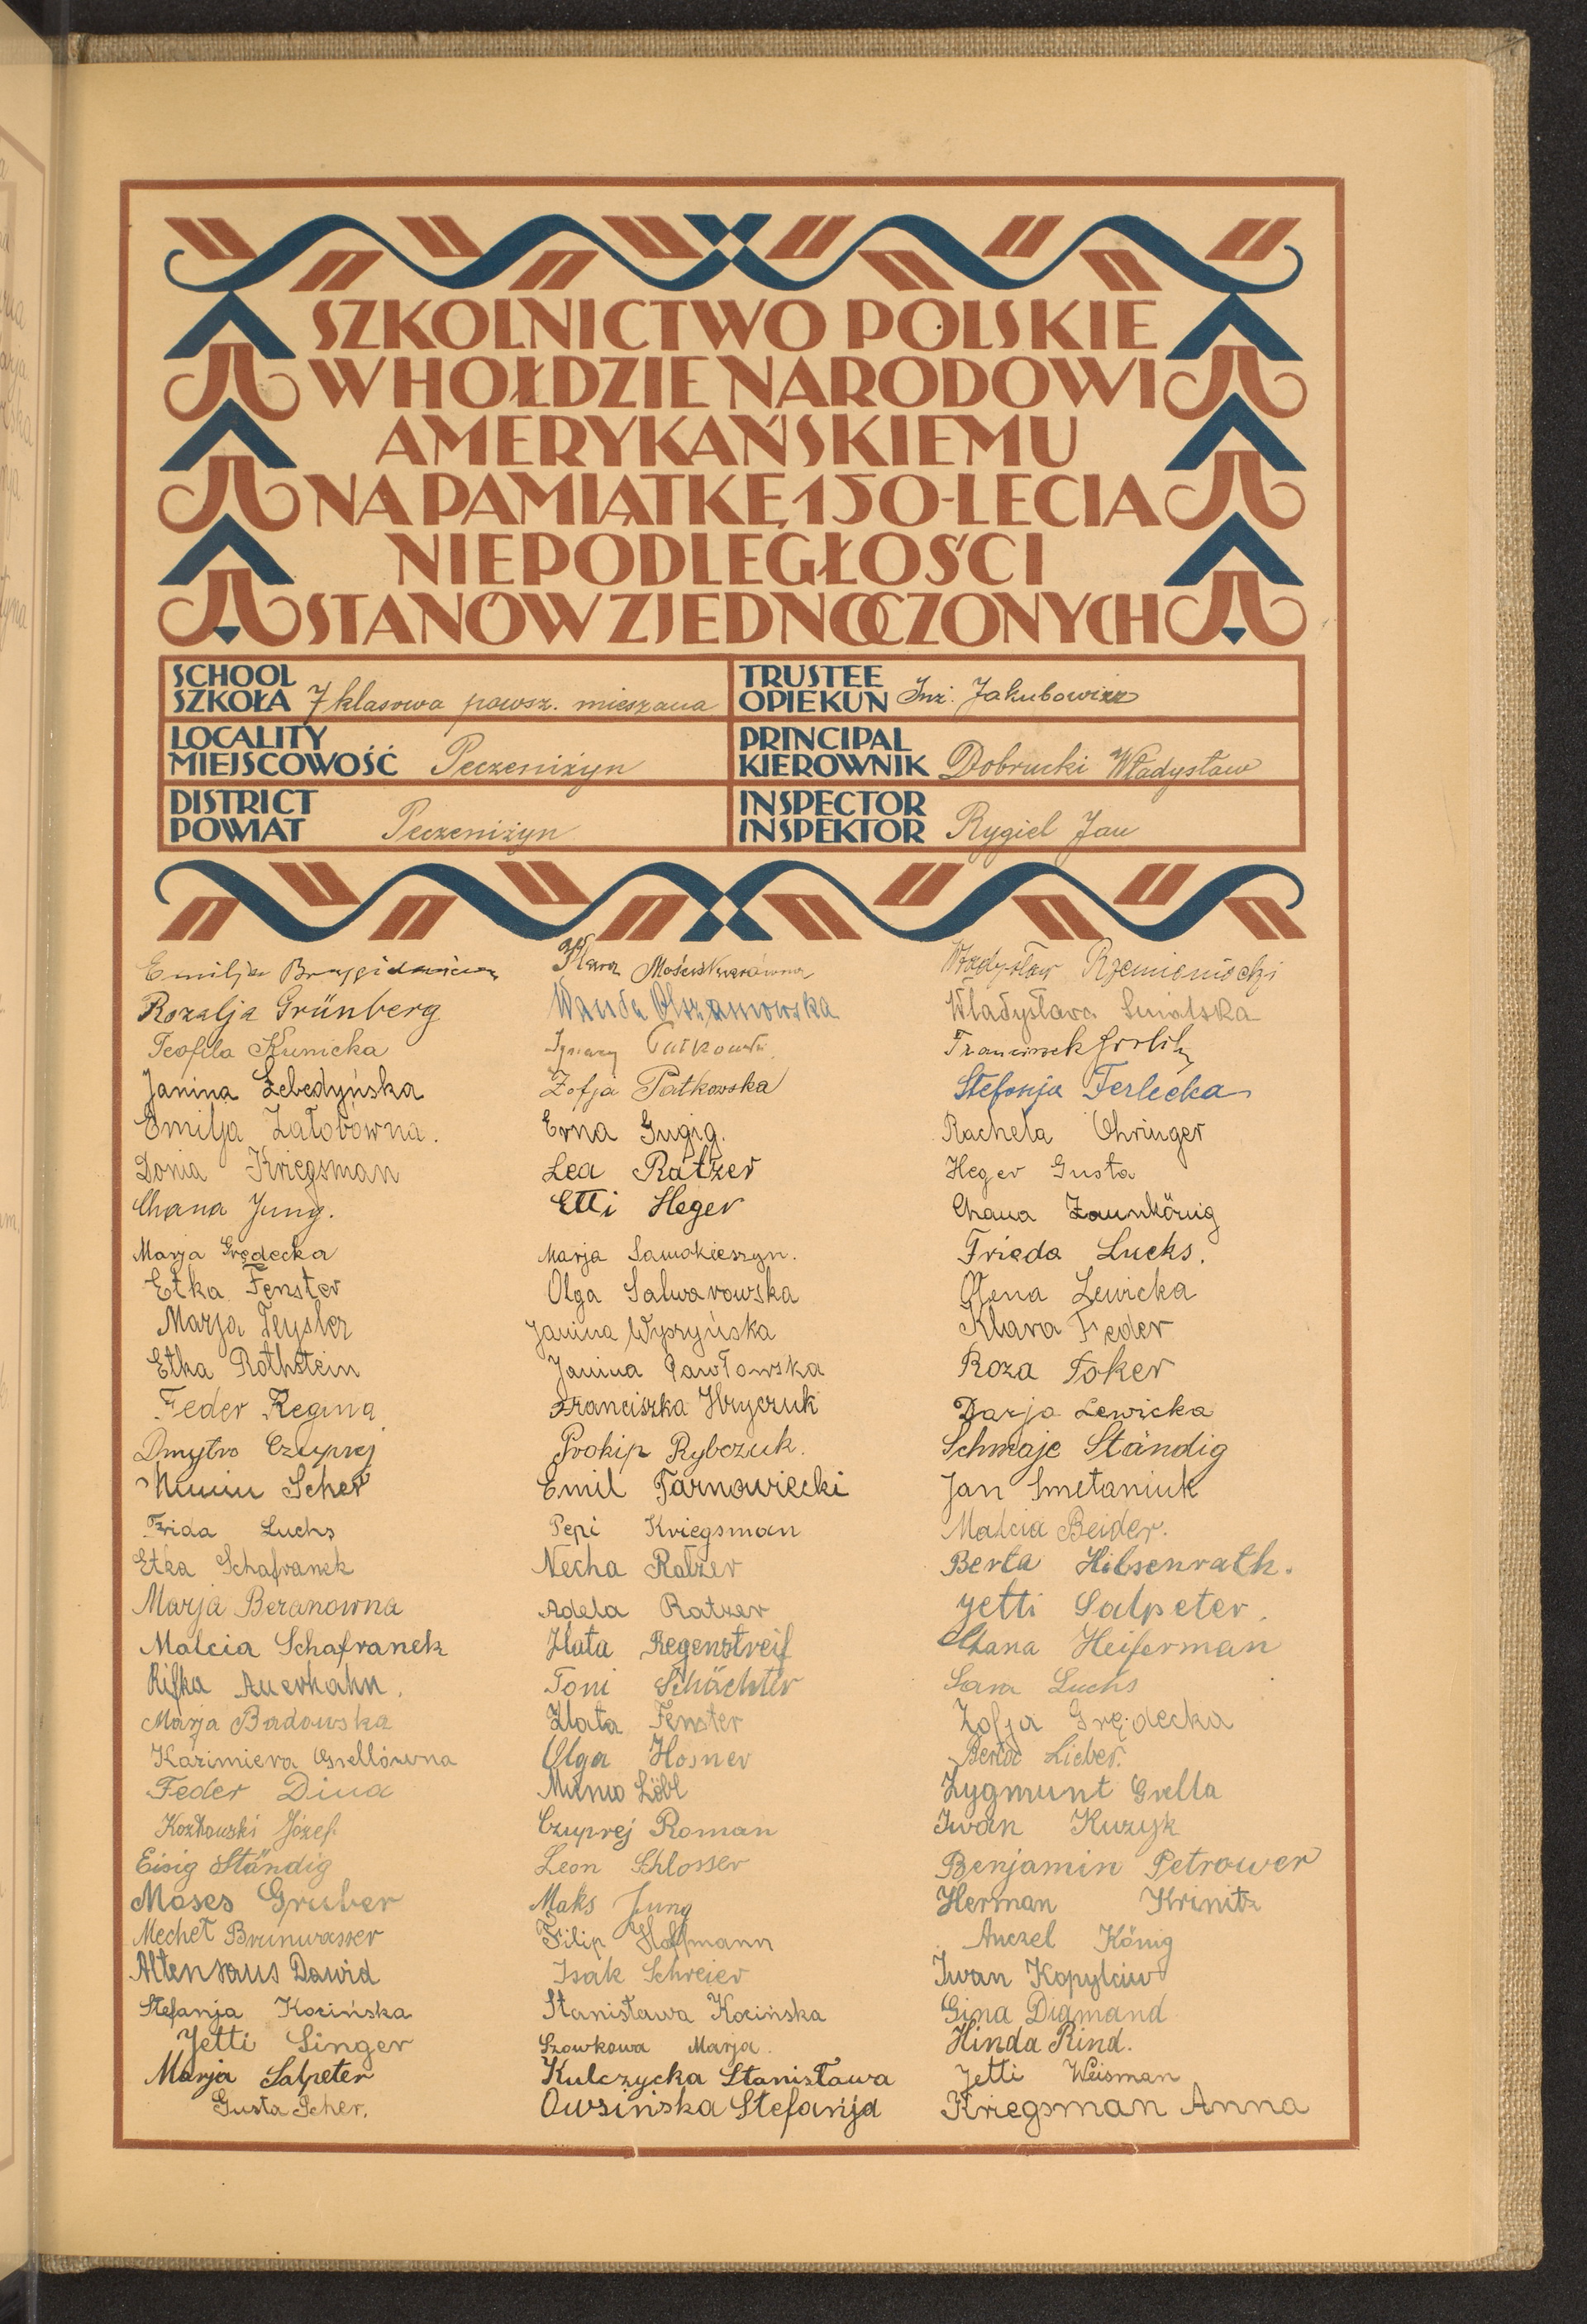 SZKOLNICTWO POLSKIE
W HOŁDZIE NARODOWI
AMERYKAŃSKIEMU
NA PAMIĄTKĘ 150-LECIA
NIEPODLEGŁOŚCI
STANÓW ZJEDNOCZONYCH
SCHOOL
SZKOŁA 7 klasowa powsz. mieszana
TRUSTEE
OPIEKUN Inż. Jakubowicz
LOCALITY
MIEJSCOWOŚĆ Peczeniżyn
PRINCIPAL
KIEROWNIK Dobrucki Władysław
DISTRICT
POWIAT Peczeniżyn
INSPECTOR
INSPEKTOR Rygiel Jan
Emilja
Rozalja Grünberg
Teofila Kunicka
Janina Lebedyńska
Emilja Załobówna.
Donia Kriegsman
Chana Jung.
Marja Grędecka
Etka Fenster
Marja Teysler
Etka Rothstein
Feder Regina
Dmytro Czuprej
Scher
Frida Luchs
Etka Schafranek
Marja Beranowna
Malcia Schafranek
Rifka Auerhahn.
Marja Badowska
Kazimiera Grellówna
Feder Dina
Kozłowski Józef.
Eisig Ständig
Moses Gruber
Mechel Brunwasser
Altenhaus Dawid
Stefanja Kocińska
Jetti Singer
Marja Salpeter
Gusta Scher.
Klara
Wanda Olszanowska
Ignacy
Zofja Patkowska
Erna Gugig.
Lea Ratzer
Etti Heger
Marja Samokieszyn.
Olga Salwarowska
Janina Wyszyńska
Janina Pawłowska
Franciszka Hryczuk
Prokip Rybczuk.
Emil Tarnowiecki
Pepi Kriegsman
Necha Ratzer
Adela Ratzer
Zlata Regenstreif
Toni Schächter
Zlata Fenster
Olga Hosner
Munio Löbl
Czuprej Roman
Leon Schlosser
Maks Jung
Filip Hoffmann
Isak Schreier
Stanisława Kocińska
Szowkowa Marja.
Kulczycka Stanisława
Owsińska Stefanja
Władysław Rzemieniecki
Władysława
Franciszek
Stefanja Ferlecka
Rachela Ohringer
Heger Gusta
Chana Zaunkönig
Frieda Lucks.
Olena Lewicka
Klara Feder
Roza Toker
Darja Lewicka
Schmaje Ständig
Jan Smetaniuk
Malcia Beider.
Berta Hilsenrath.
Yetti Salpeter.
Chana Heiferman
Sara Luchs
Zofja Grędecka
Berta Lieber.
Zygmunt Grella
Iwan Kuzyk
Benjamin Petrower
Herman Krinitz
Anczel König
Iwan Kopylciw
Gina Diamand
Hinda Rind.
Jetti Weisman
Kriegsman Anna